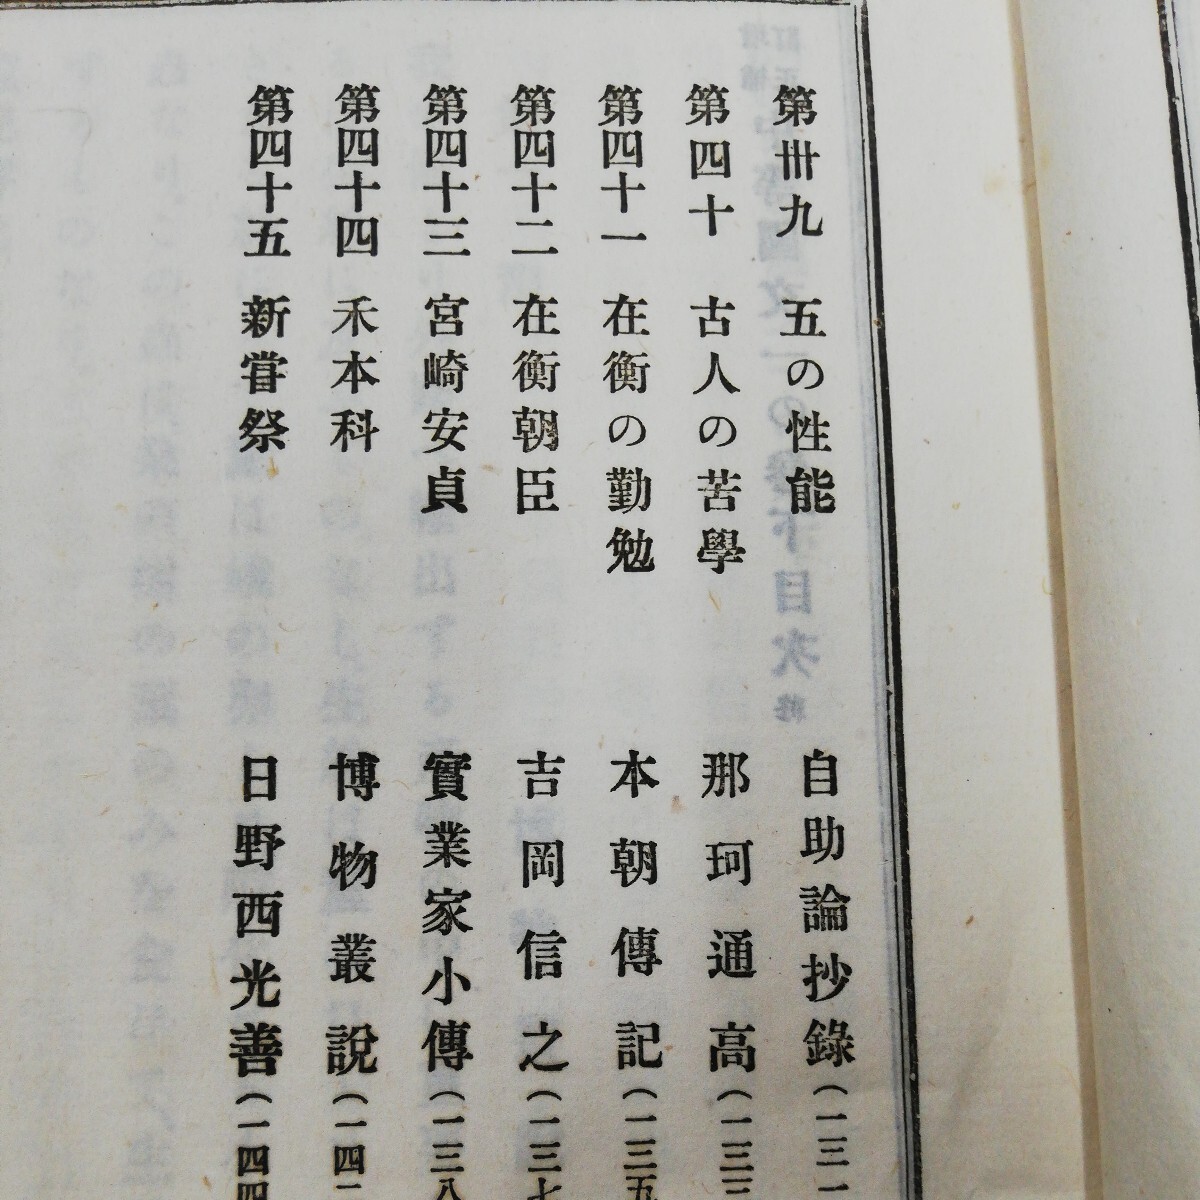 第卅九 五の性能 自助論抄錄(一三一
第四十 古人の苦學 那珂通高(一三三
第四十一 在衡の勤勉 本朝傳記(一三五
第四十二 在衡朝臣 吉岡信之(一三七
第四十三 宮崎安貞 實業家小傳(一三八
第四十四 禾本科 博物叢說(一四二
第四十五 新嘗祭 日野西光善(一四四